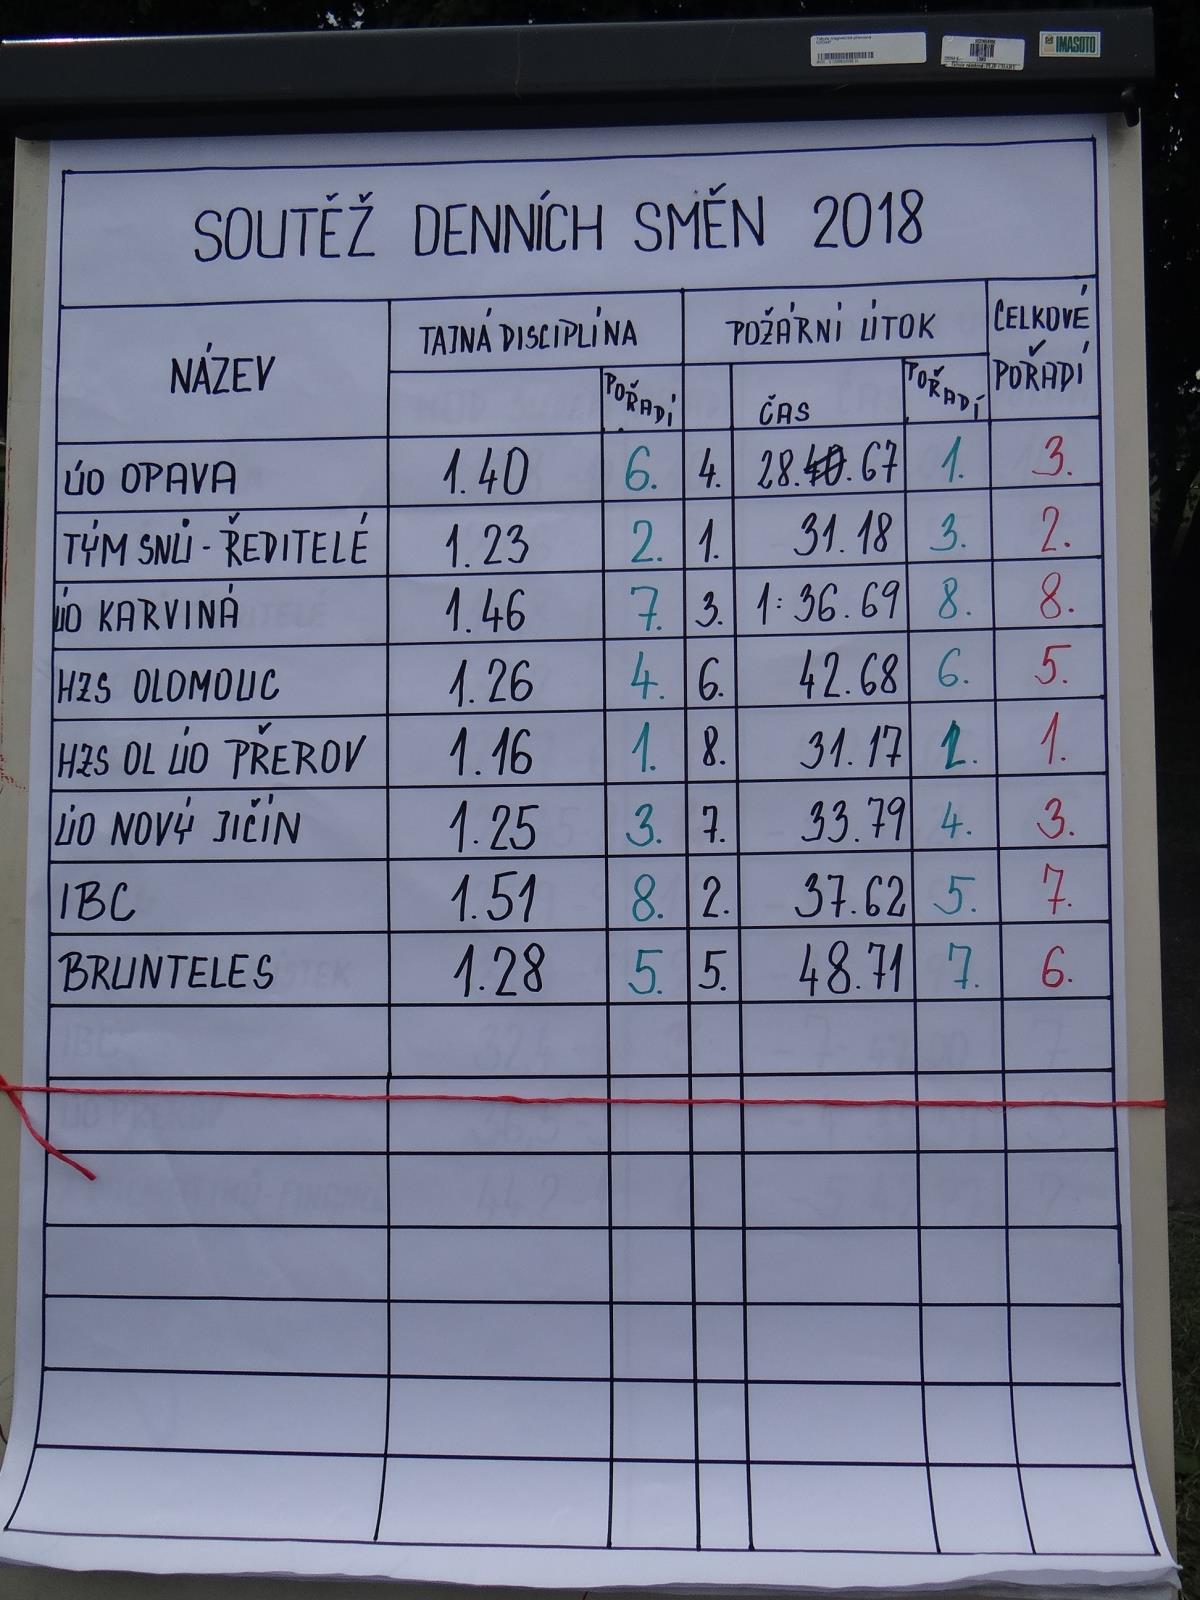 IMASOTO
SOUTĚŽ DENNÍCH SMĚN 2018
NÁZEV TAJNÁ DISCIPLÍNA POŘADÍ POŽÁRNÍ ÚTOK ČAS POŘADÍ CELKOVÉ POŘADÍ
ÚO OPAVA 1.40 6. 4. 28.40.67 1. 3.
TÝM SNŮ - ŘEDITELÉ 1.23 2. 1. 31.18 3. 2.
ÚO KARVINÁ 1.46 7. 3. 1:36.69 8. 8.
HZS OLOMOUC 1.26 4. 6. 42.68 6. 5.
HZS OL ÚO PŘEROV 1.16 1. 8. 31.17 2. 1.
ÚO NOVÝ JIČÍN 1.25 3. 7. 33.79 4. 3.
IBC 1.51 8. 2. 37.62 5. 7.
BRUNTELES 1.28 5. 5. 48.71 7. 6.